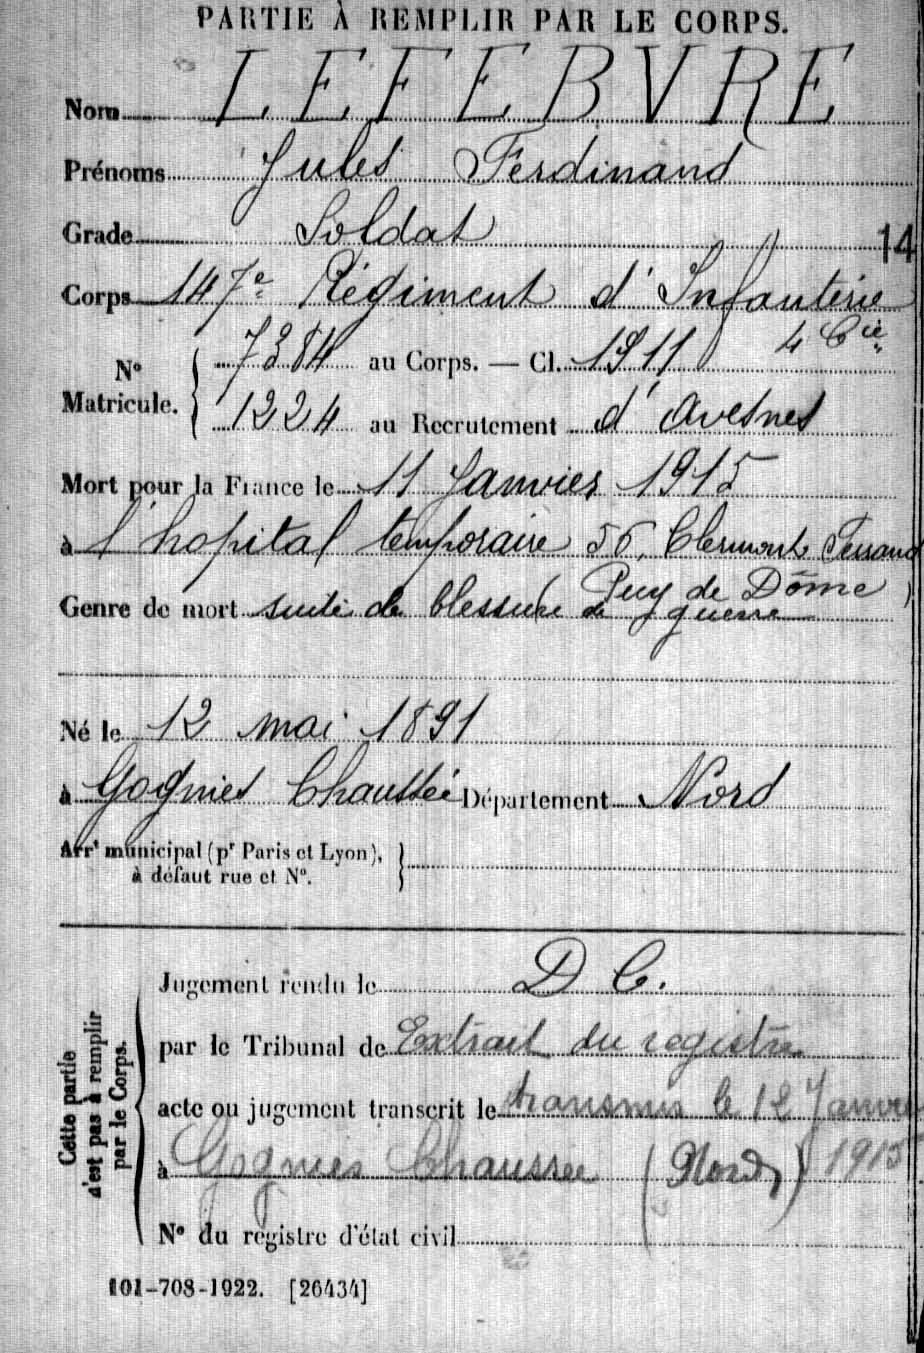 PARTIE À REMPLIR PAR LE CORPS.
Nom LEFEBVRE
Prénoms Jules Ferdinand
Grade Soldat
14
Corps 147e Régiment d'Infanterie
4 Cie
N° Matricule. 7384 au Corps. — Cl. 1911
1224 au Recrutement d'Avesnes
Mort pour la France le 11 Janvier 1915
à l'hopital temporaire 56, Clermont Ferrand
(Puy de Dôme)
Genre de mort suite de blessure de guerre
Né le 12 mai 1891
à Gognies Chaussée Département Nord
Arrt municipal (pr Paris et Lyon),
à défaut rue et N°.
Cette partie
n'est pas à remplir
par le Corps.
Jugement rendu le D C.
par le Tribunal de Extrait du registre
acte ou jugement transcrit le transmis le 12 Janvier
1915
à Gognies Chaussée (Nord)
N° du registre d'état civil
101-708-1922. [26434]